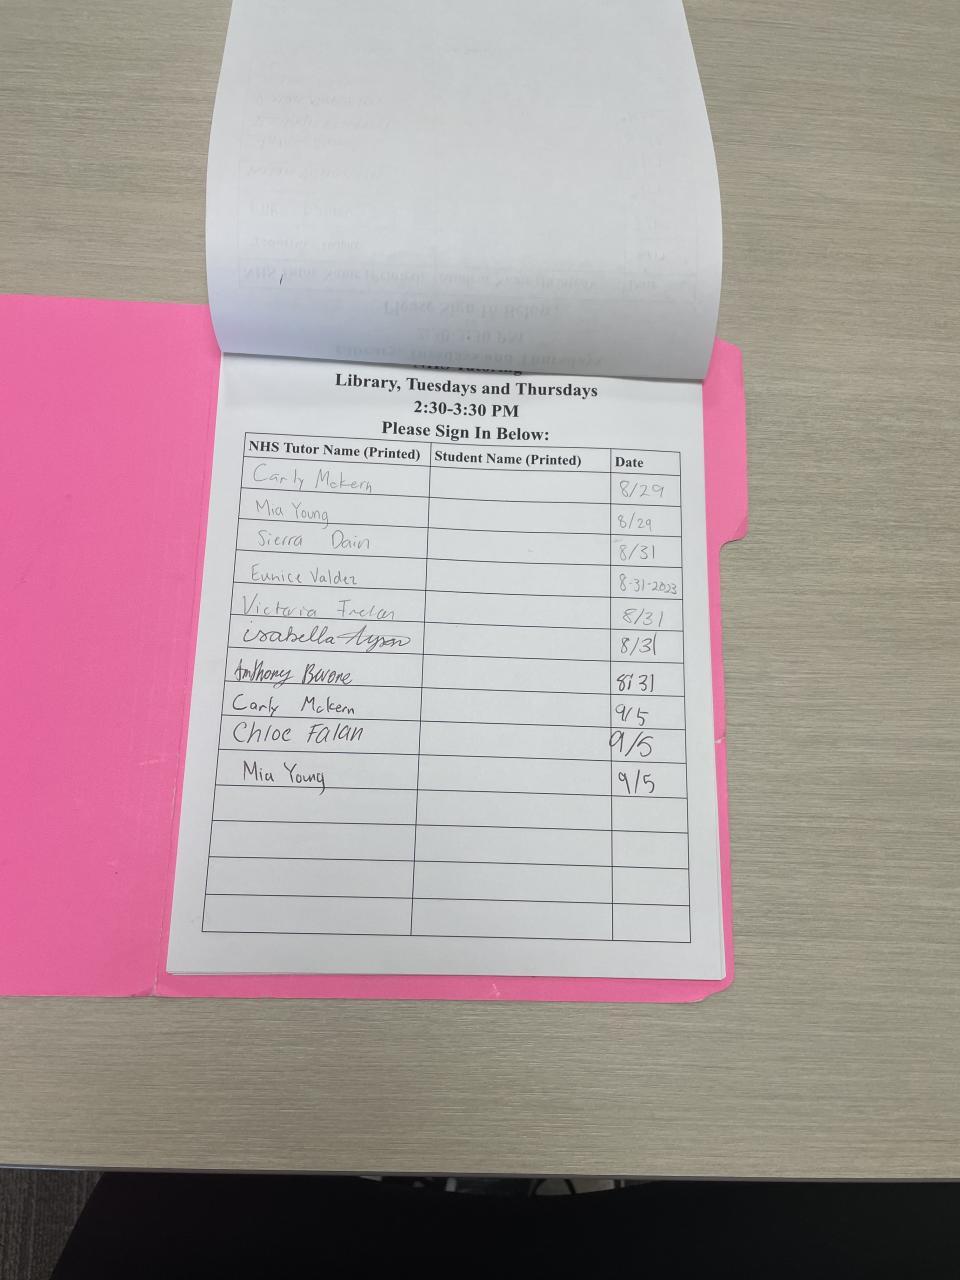 NHS Tutoring
Library, Tuesdays and Thursdays
2:30-3:30 PM
Please Sign In Below:
NHS Tutor Name (Printed) Student Name (Printed) Date
Carly McKern 8/29
Mia Young 8/29
Sierra Dain 8/31
Eunice Valdez 8-31-2023
Victoria 8/31
isabella 8/31
Anthony 8/31
Carly McKern 9/5
Chloe Falan 9/5
Mia Young 9/5